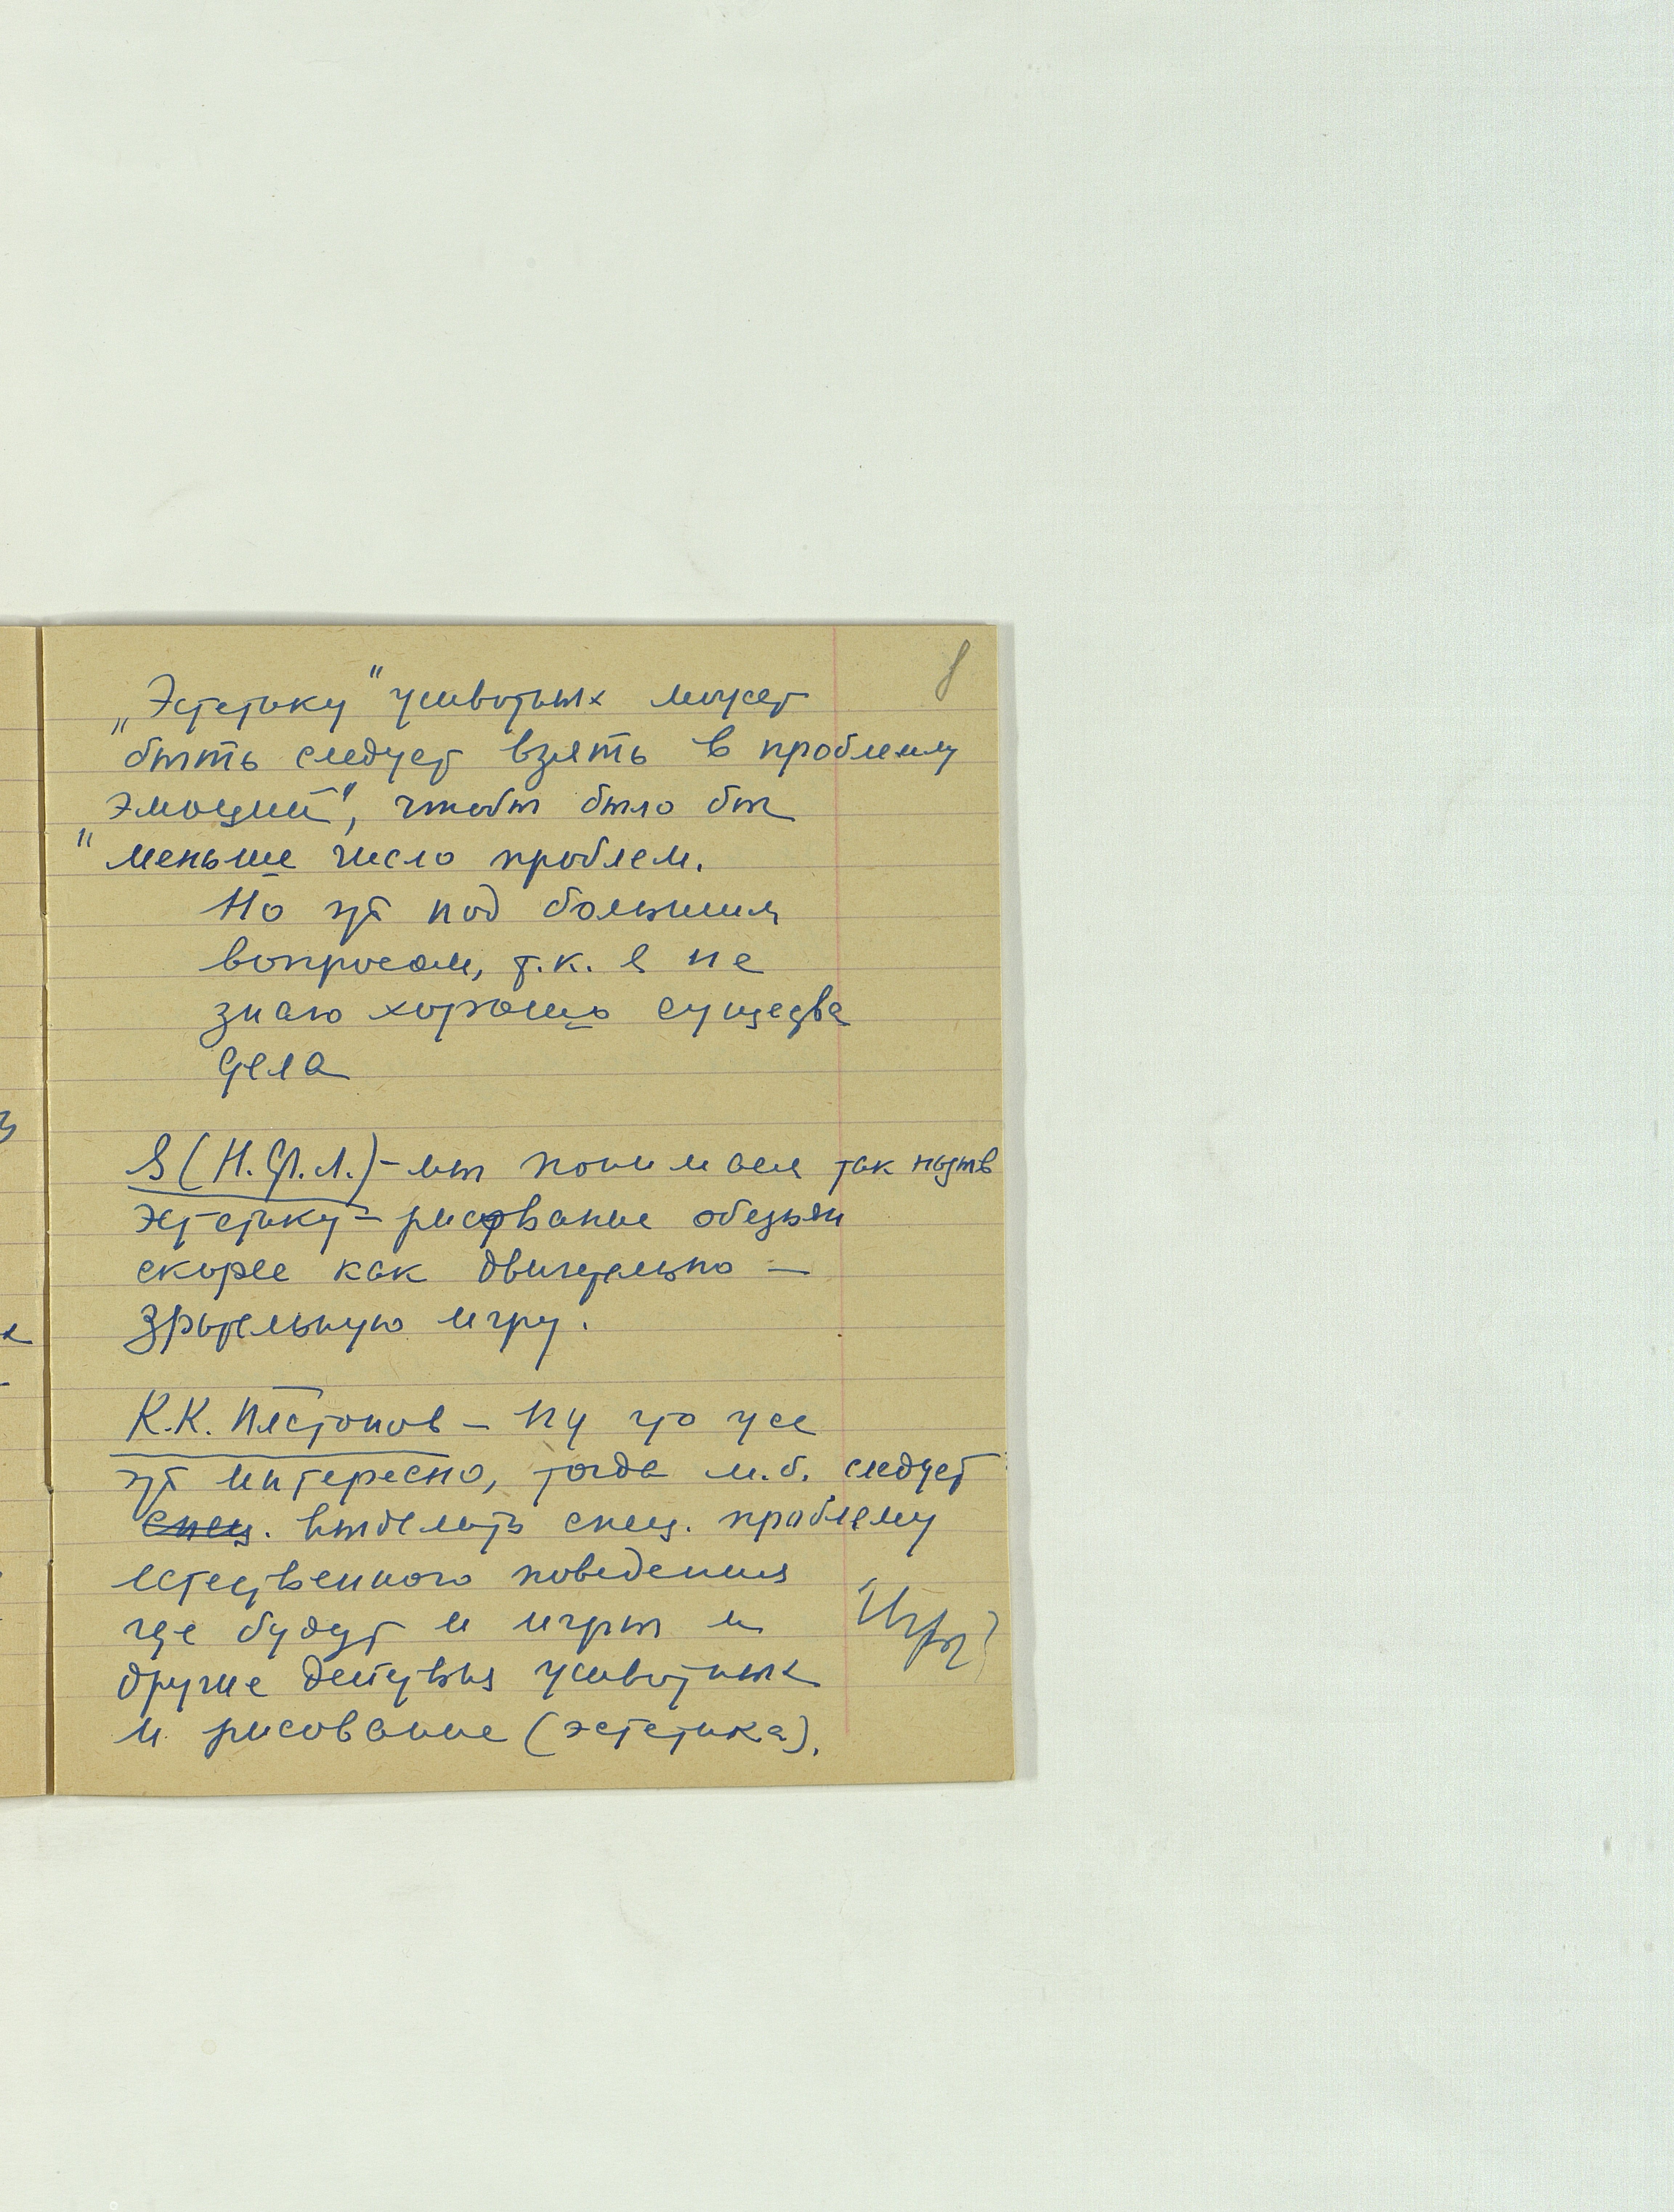 8
„Эстетику" животных может
быть следует взять в проблему
"эмоций", чтобы было бы
меньше число проблем.
Но это под большим
вопросом, т.к. я не
знаю хорошо существа
дела
Я (Н.Ф.Л.) – мы понимаем так назыв
эстетику – рисование обезьян
скорее как двигательно –
зрительную игру.
К.К. Платонов – Ну что же
это интересно, тогда м.б. следует
спец. выделить спец. проблему
естественного поведения
где будут и игры и
другие действия животных
и рисование (эстетика).
Игры?